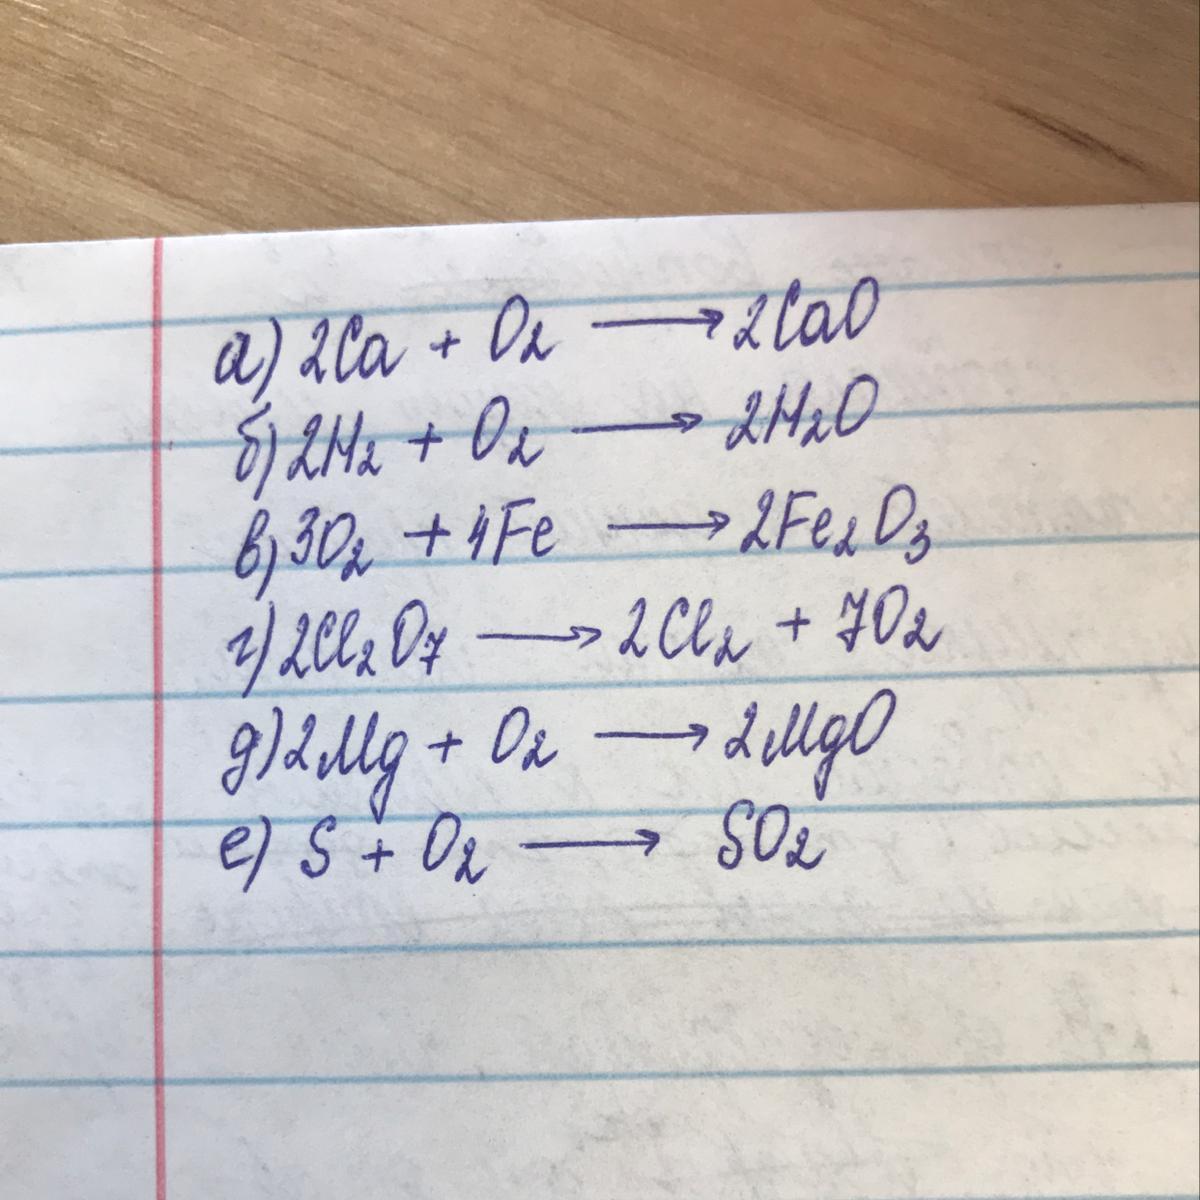 а) 2Ca + O₂ ⟶ 2CaO
б) 2H₂ + O₂ ⟶ 2H₂O
в) 3O₂ + 4Fe ⟶ 2Fe₂O₃
г) 2Cl₂O₇ ⟶ 2Cl₂ + 7O₂
д) 2Mg + O₂ ⟶ 2MgO
е) S + O₂ ⟶ SO₂